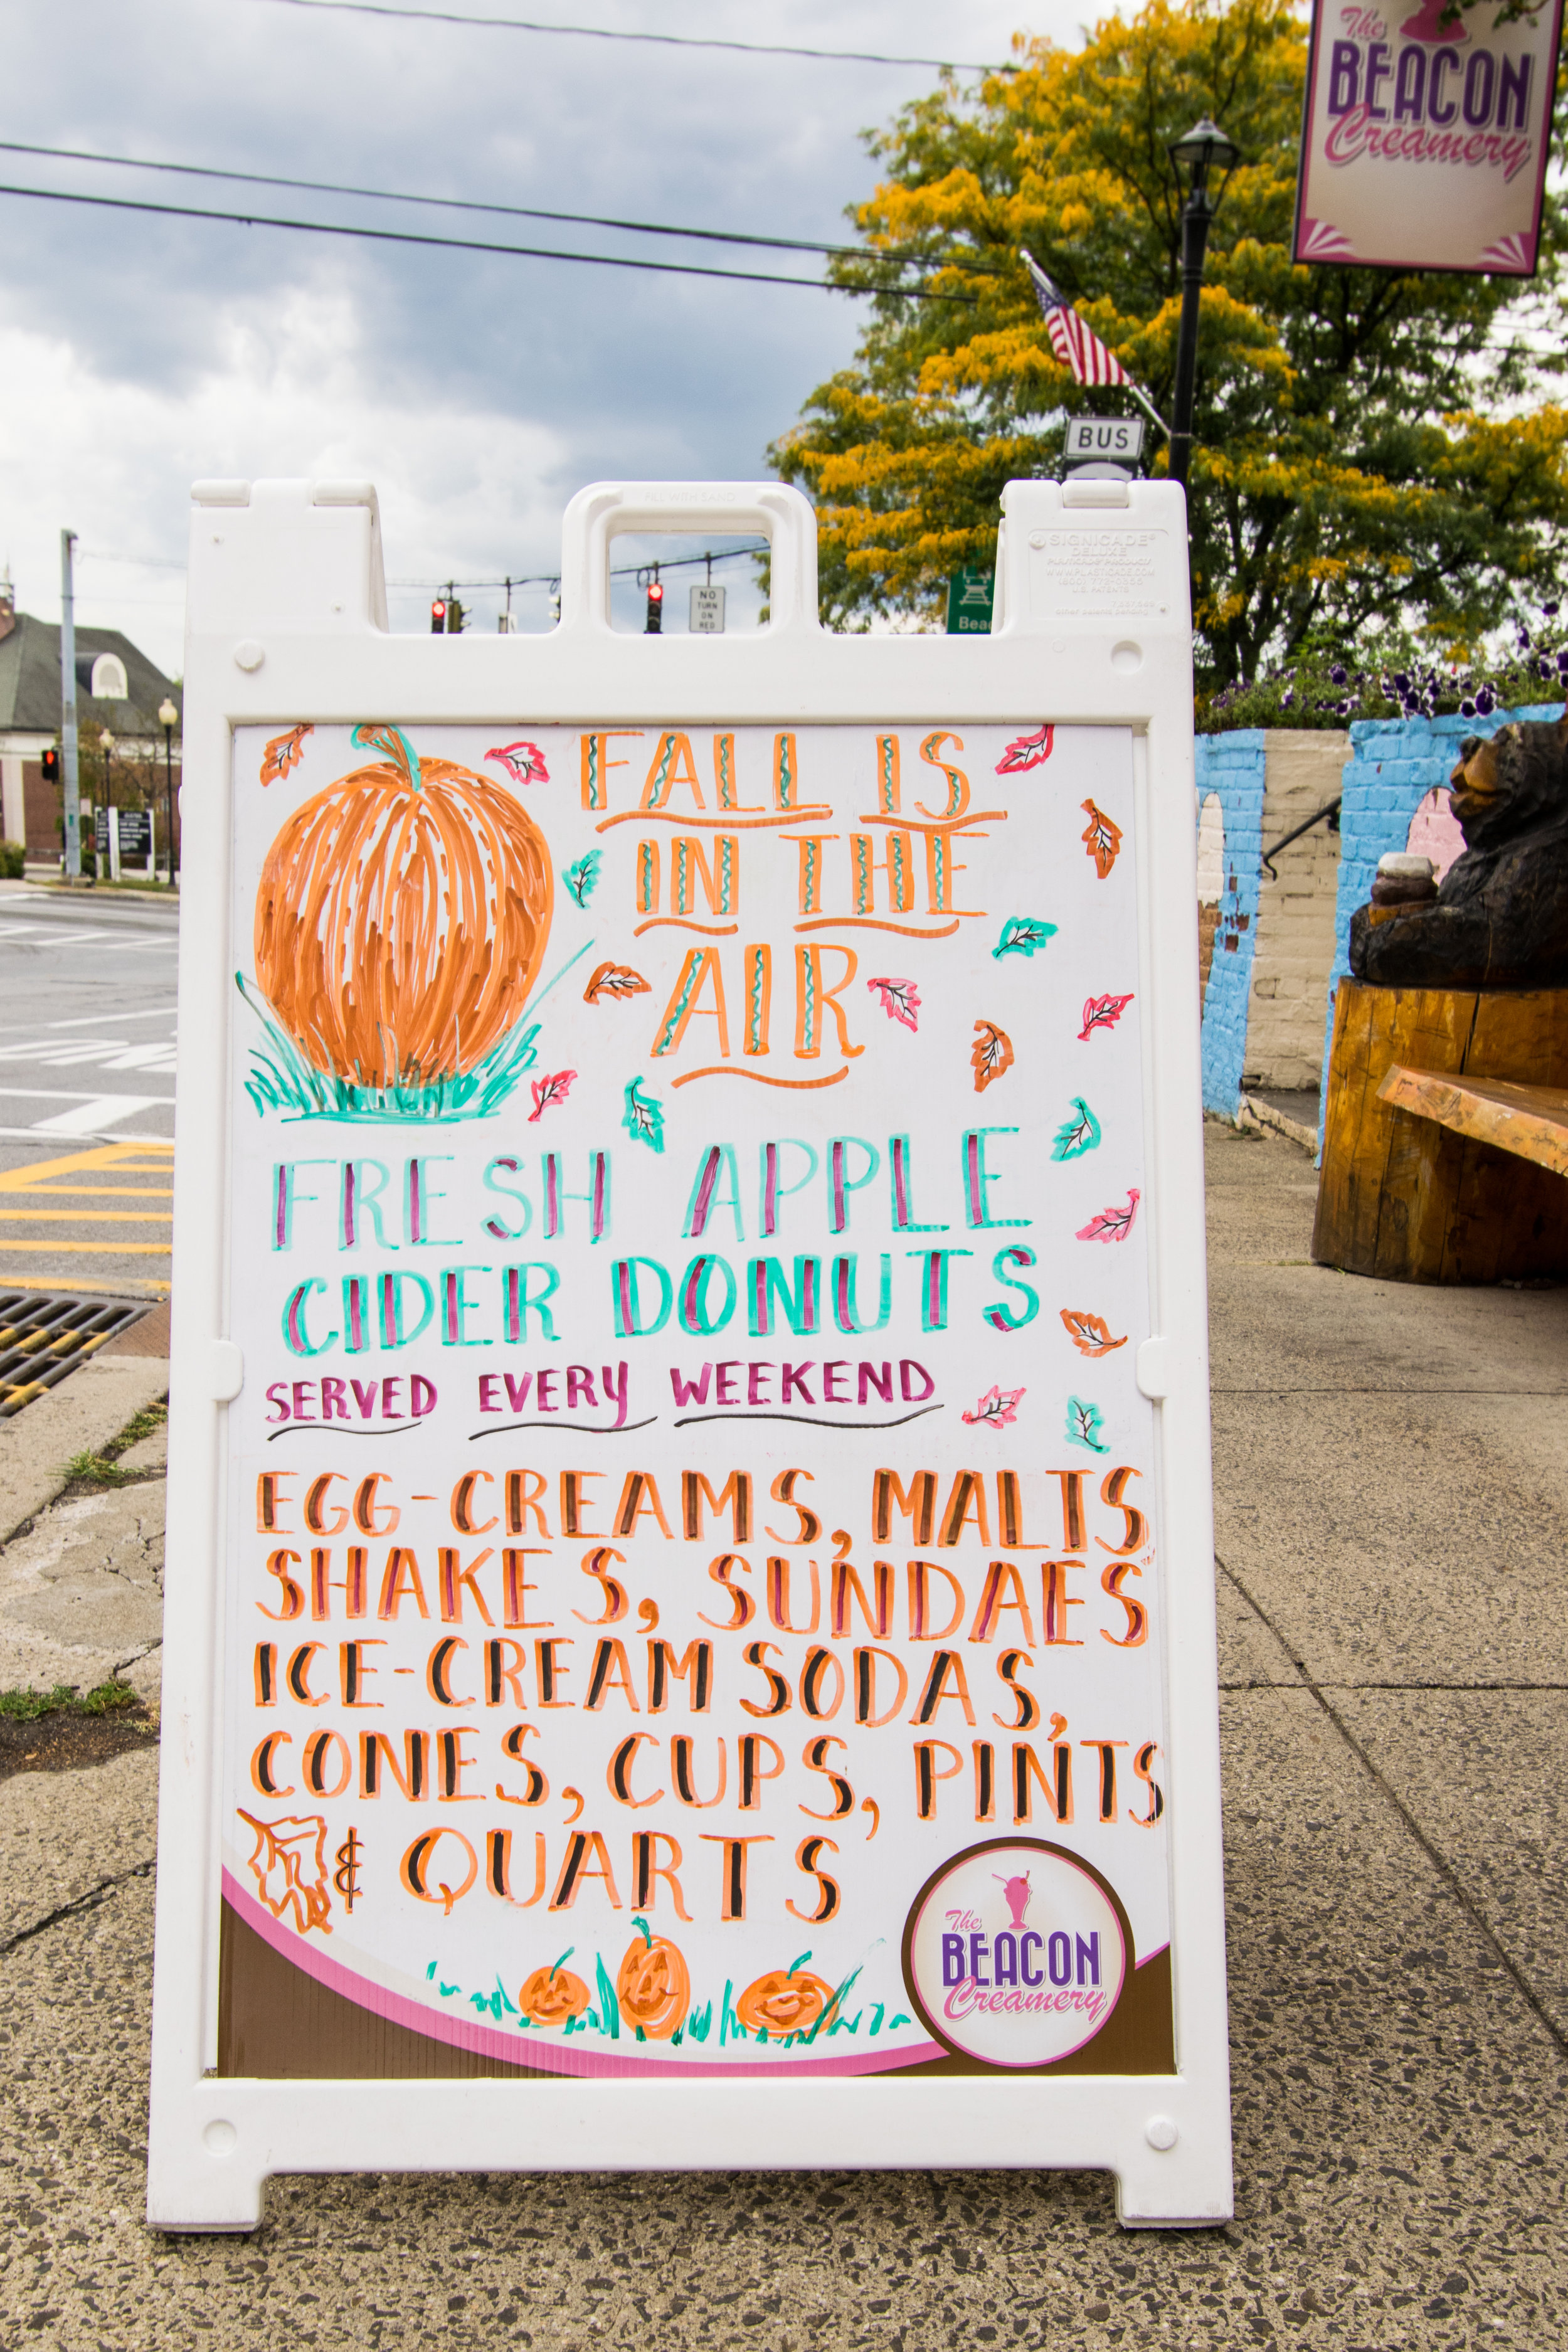 The
BEACON
Creamery
BUS
FILL WITH SAND
SIGNICADE®
DELUXE
NO
TURN
ON
RED
FALL IS
IN THE
AIR
FRESH APPLE
CIDER DONUTS
SERVED EVERY WEEKEND
EGG-CREAMS, MALTS
SHAKES, SUNDAES
ICE-CREAM SODAS,
CONES, CUPS, PINTS
& QUARTS
The
BEACON
Creamery